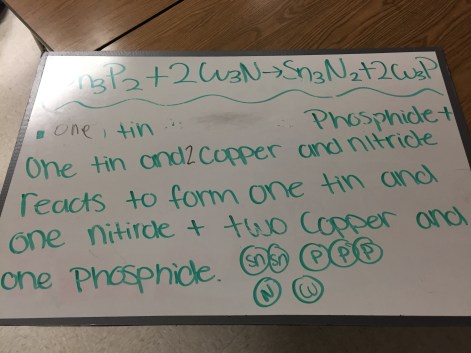 n₃P₂ + 2Cu₃N → Sn₃N₂ + 2Cu₃P
one, tin Phosphide +
One tin and 2 Copper and nitride
reacts to form one tin and
one nitirde + two Copper and
one Phosphide. Sn Sn P P P
N Cu